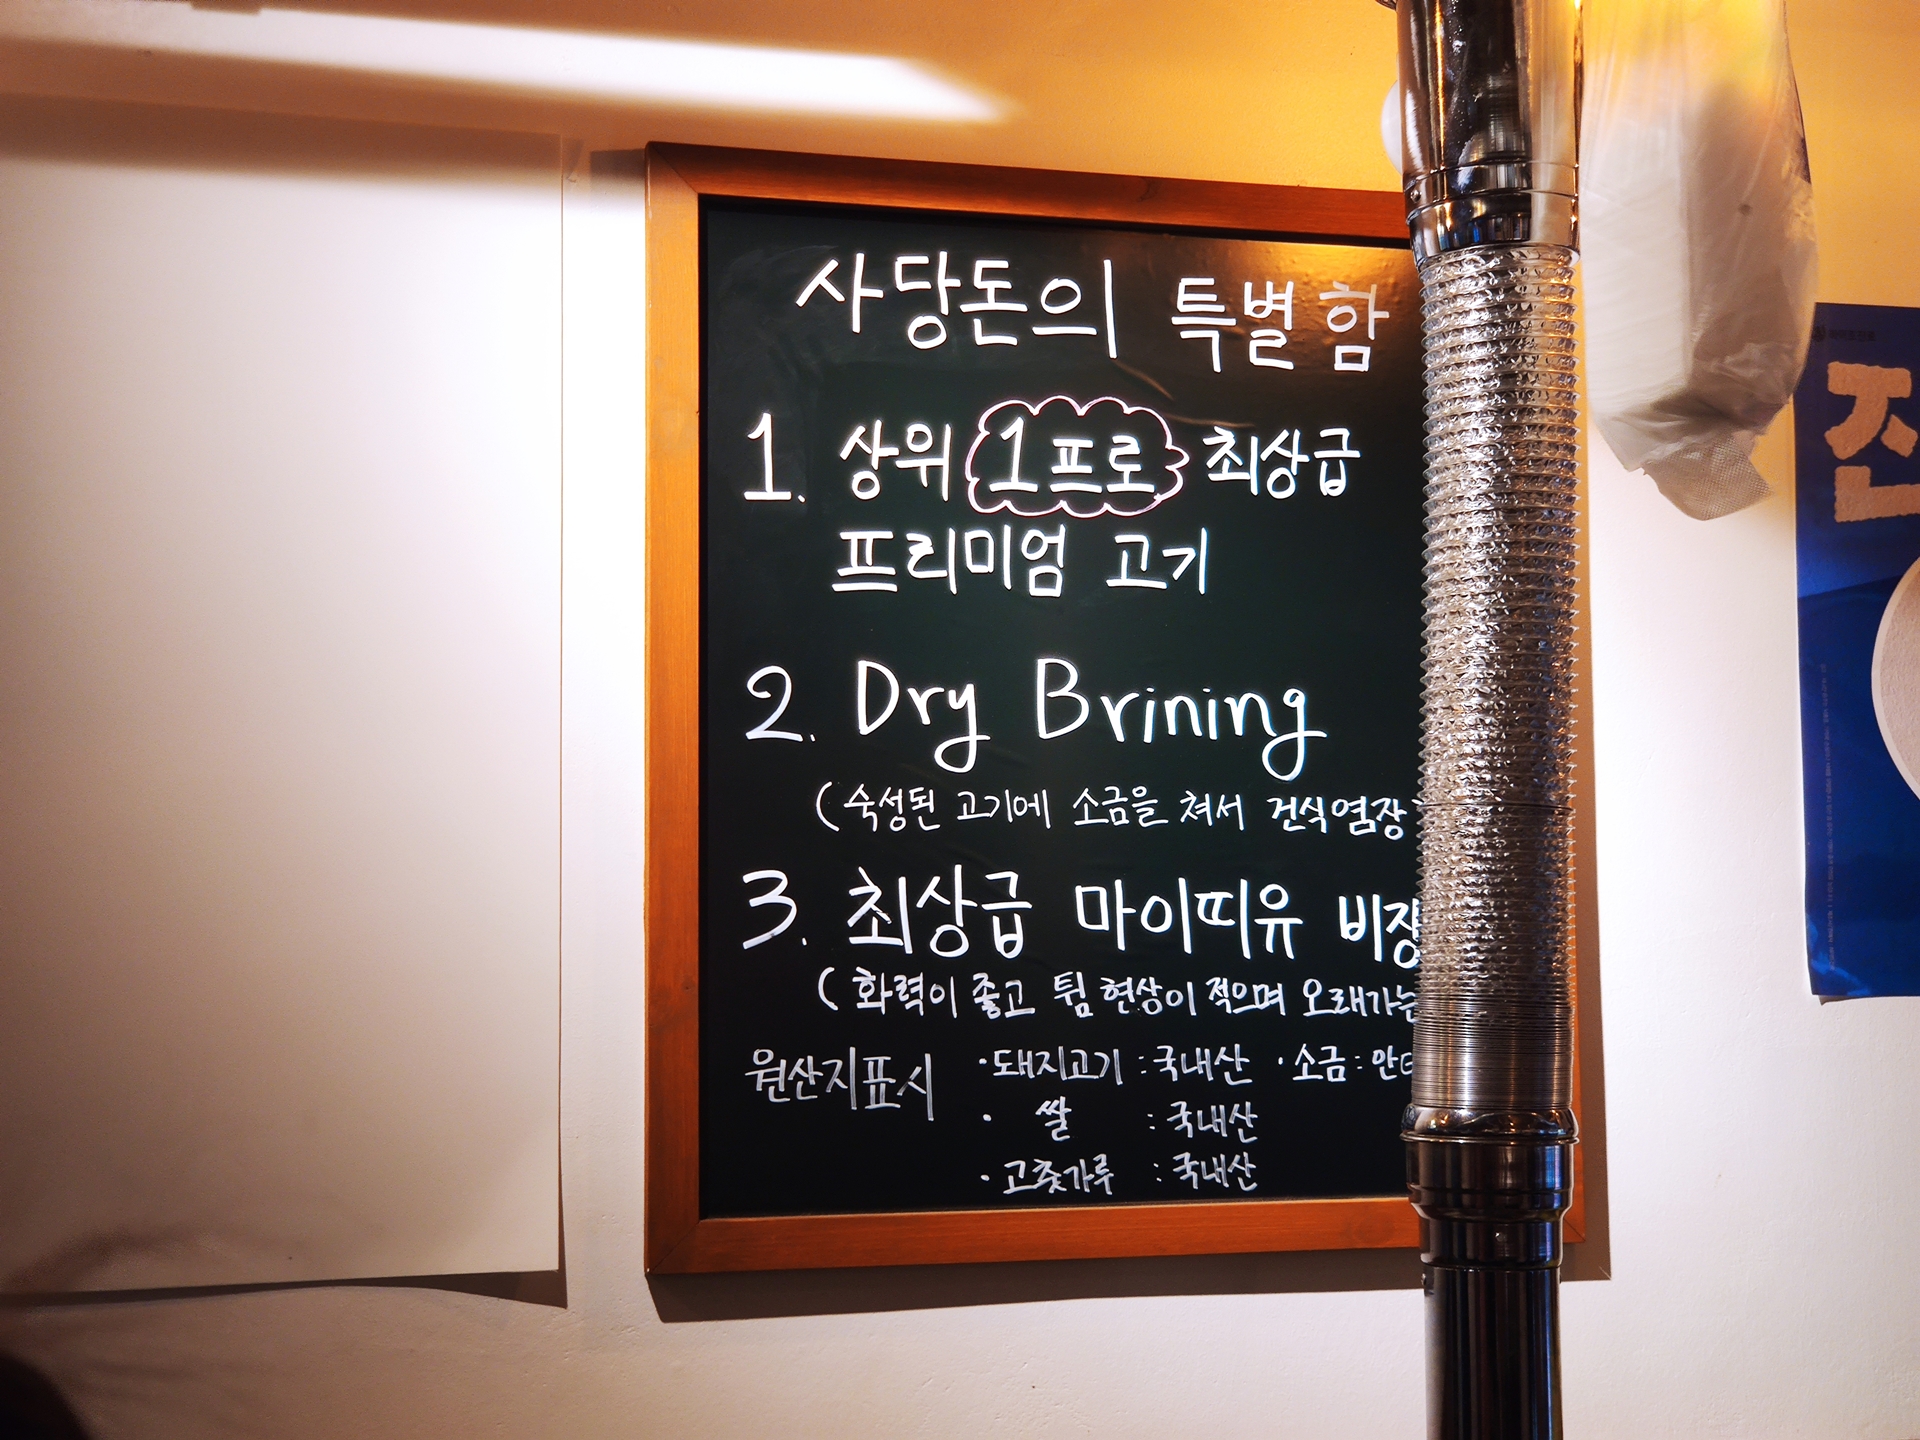 사당돈의 특별함
1. 상위 1프로 최상급
프리미엄 고기
2. Dry Brining
(숙성된 고기에 소금을 쳐서 건식염장
3. 최상급 마이띠유
(화력이 좋고 튐 현상이 적으며 오래가는
원산지표시 ·돼지고기 : 국내산 ·소금 :
· 쌀 : 국내산
· 고춧가루 : 국내산